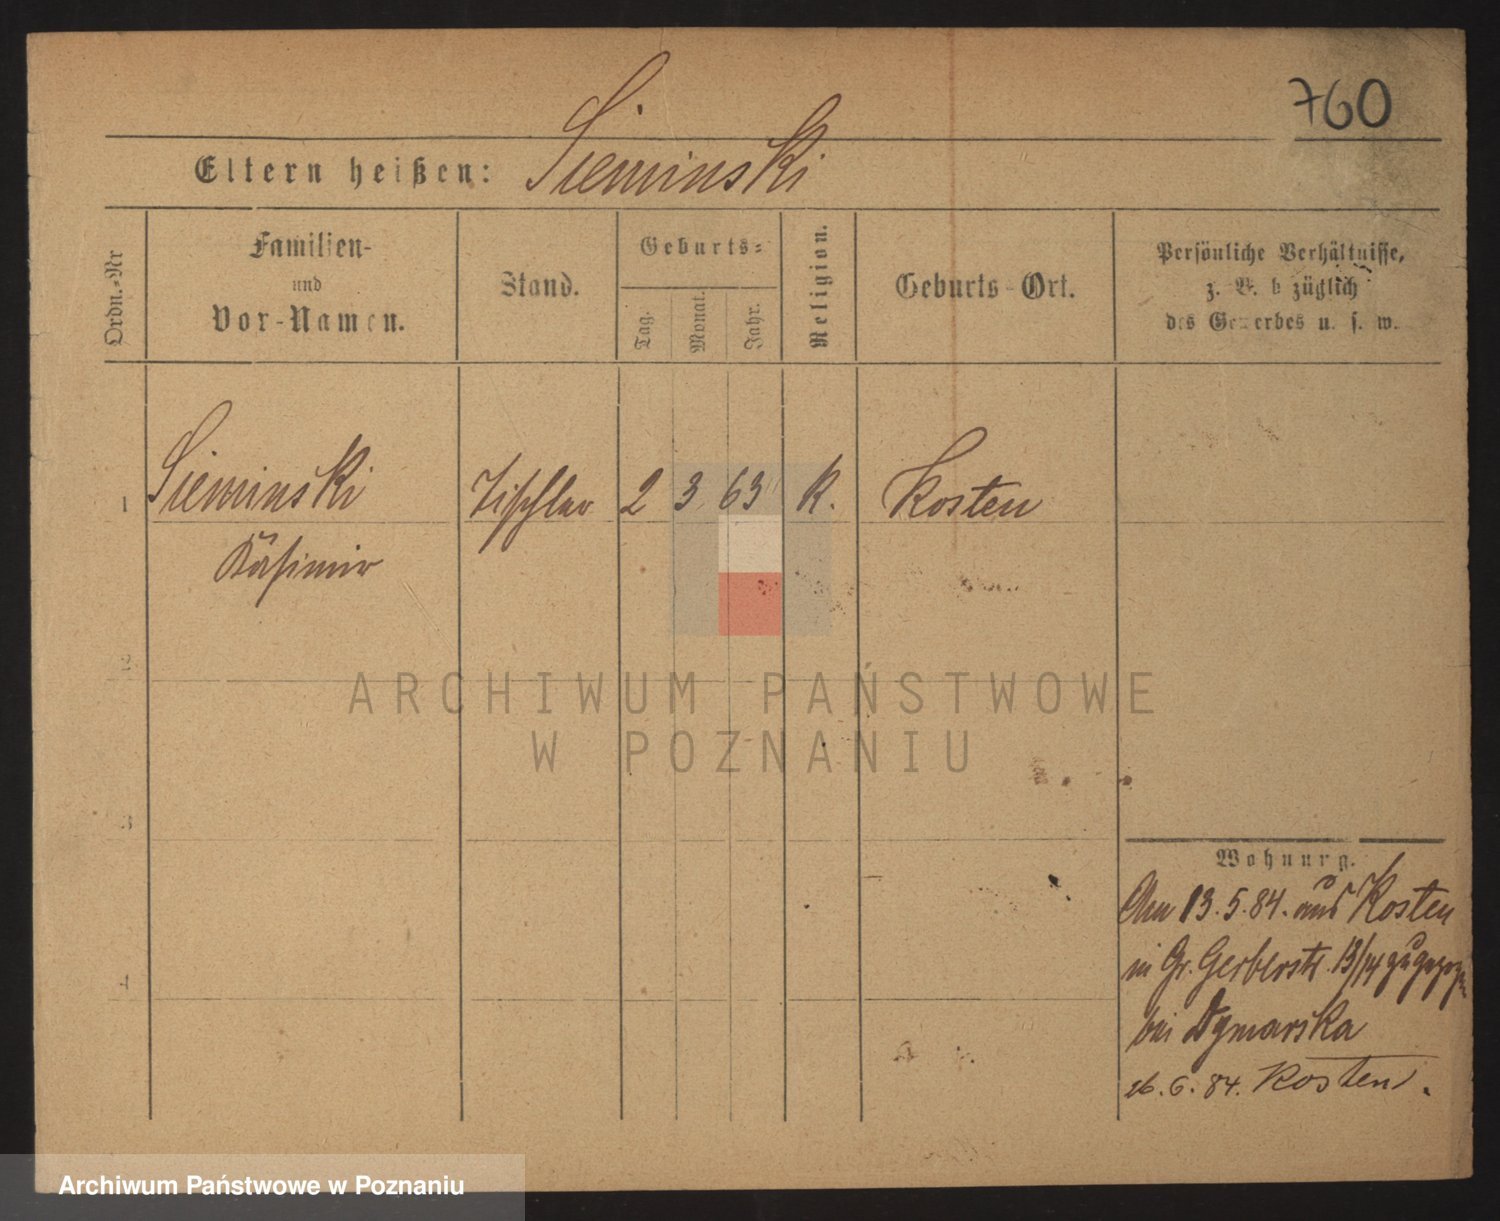 760
Eltern heißen: Sieminski
Ordn.-Nr
Familien-
und
Vor-Namen.
Stand.
Geburts-
Tag.
Monat.
Jahr.
Religion.
Geburts-Ort.
Persönliche Verhältnisse,
z. B. bezüglich
des Gewerbes u. s. w.
1 Sieminski Tischler 2 3 63 K. Kosten
Kasimir
2
ARCHIWUM PAŃSTWOWE
W POZNANIU
3
Wohnung.
Am 13.5.84. aus Kosten
in Gr. Gerberstr. 13/14 zugezogen
4
bei Dymarska
26.6.84. Kosten.
Archiwum Państwowe w Poznaniu